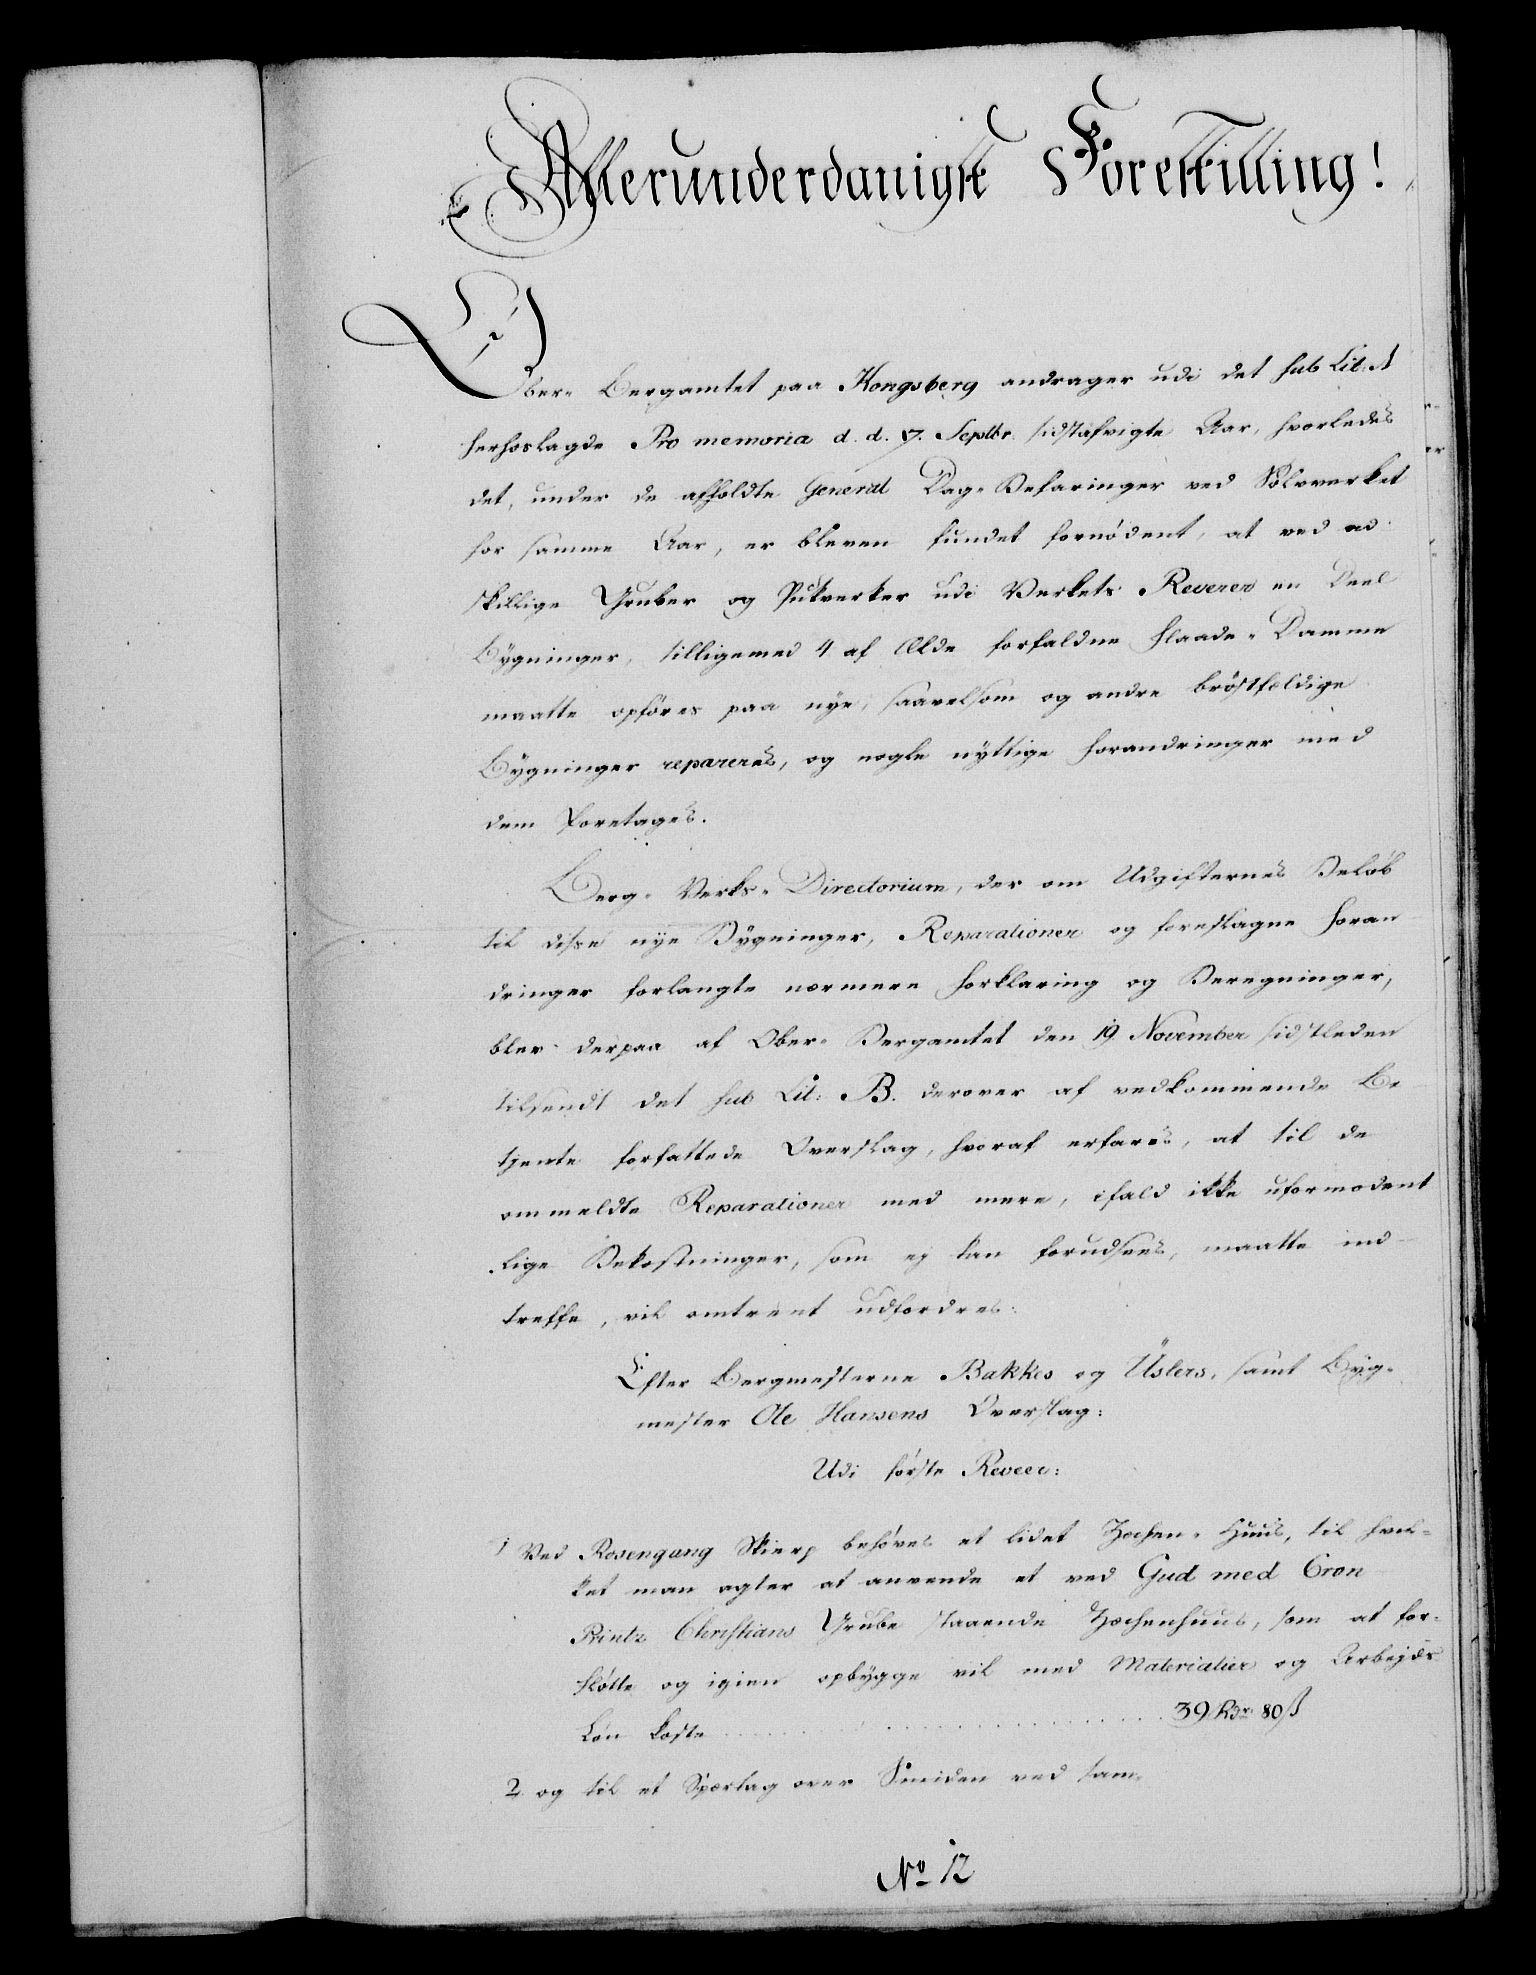 Allerunderdanigst Forestilling!
Ober- Bergamtet paa Kongsberg andrager udi det sub Lit: A
herhoslagde Pro memoria d. d. 7. Septbr. sidstafvigte Aar, hvorledes
det, under de afholdte General Dag-Befaringer ved Sølvverket
for samme Aar, er bleven fundet fornødent, at ved ad-
skillige Gruber og Pukverker udi Verkets Reverer en Deel
Bygninger, tilligemed 4 af Ælde forfaldne Flaade-Damme
maatte opføres paa nye, saavelsom og andre brøstfeldige
Bygninger repareres, og nogle nyttige Forandringer med
dem foretages.
Berg-Verks-Directorium, der om Udgifternes Beløb
til disse nye Bygninger, Reparationer og foreslagne Foran
dringer forlangte nærmere Forklaring og Beregninger,
blev derpaa af Ober-Bergamtet den 19 November sidstleden
tilsendt det sub Lit: B. derover af vedkommende Be
tjente forfattede Overslag, hvoraf erfares, at til de
ommeldte Reparationer med mere, ifald ikke uformodent
lige Bekostninger, som ej kan forudsees, maatte ind-
treffe, vil omtrent udfordres:
Efter Bergmesterne Bakkes og Üslers, samt Byg-
mester Ole Hansens Overslag:
Udi første Reveer:
1 Ved Rosengang Skierp behøves et lidet Zechen-Huus, til hvil-
ket man agter at anvende et ved Gud med Cron
Printz Christians Grube staaende Zechenhuus, som at for-
fløtte og igien opbygge vil med Materialier og Arbejds
Løn koste . . . . . . . . . . 39 Rdr. 80 ß
2 og til et Spærlag over Smiden ved sam-
No 12